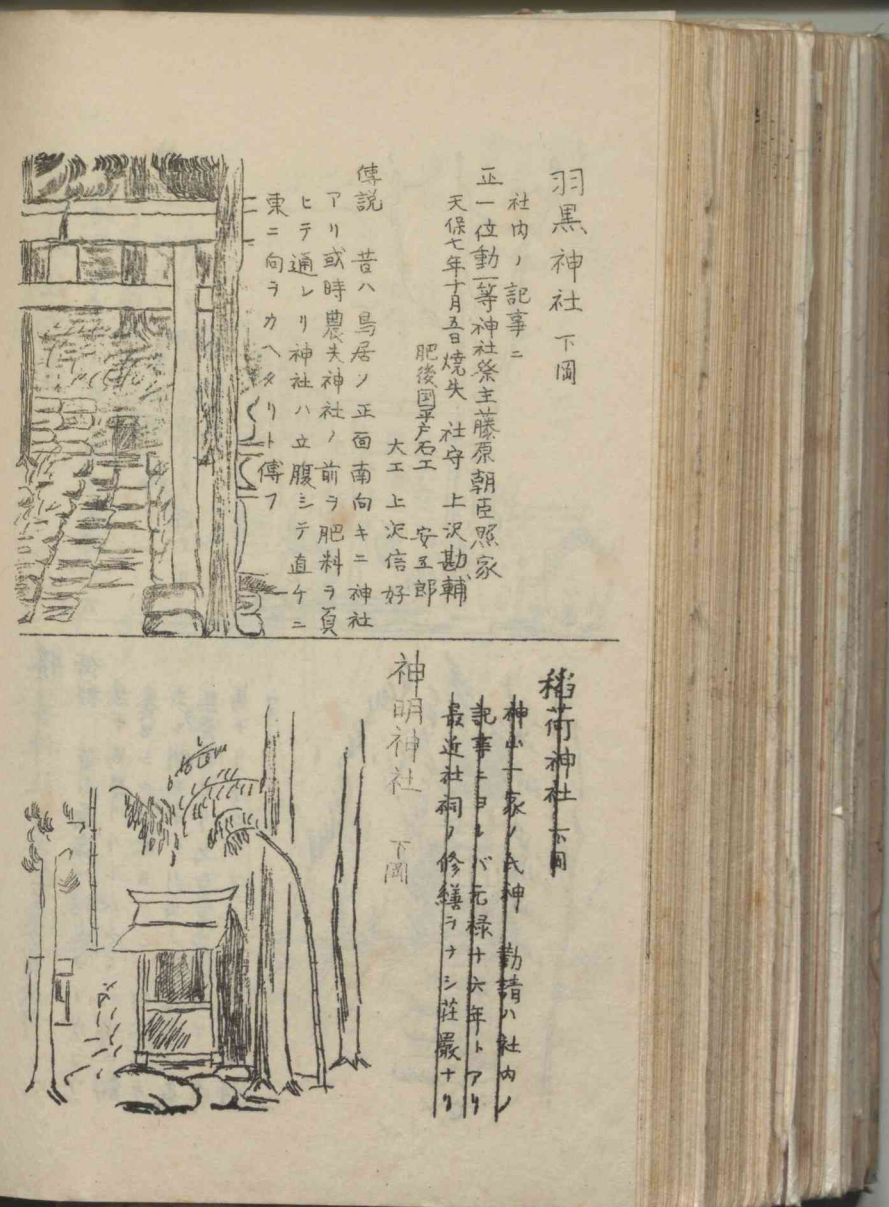 羽黒神社 下岡
社内ノ記事ニ
正一位動一等神社祭主藤原朝臣照家
天保七年十月五日焼失 社守 上沢勘輔
肥後国平戸石工 安五郎
大工 上沢信好
傳説 昔ハ鳥居ノ正面南向キニ神社
アリ或時農夫神社ノ前ヲ肥料ヲ負
ヒテ通レリ神社ハ立腹シテ直ケニ
東ニ向ヲカヘタリト傳フ
稲荷神社 下岡
神山一家ノ氏神 勧請ハ社内ノ
記事ニヨレバ元禄十六年トアリ
最近社祠ノ修繕ヲナシ荘嚴ナリ
神明神社 下岡